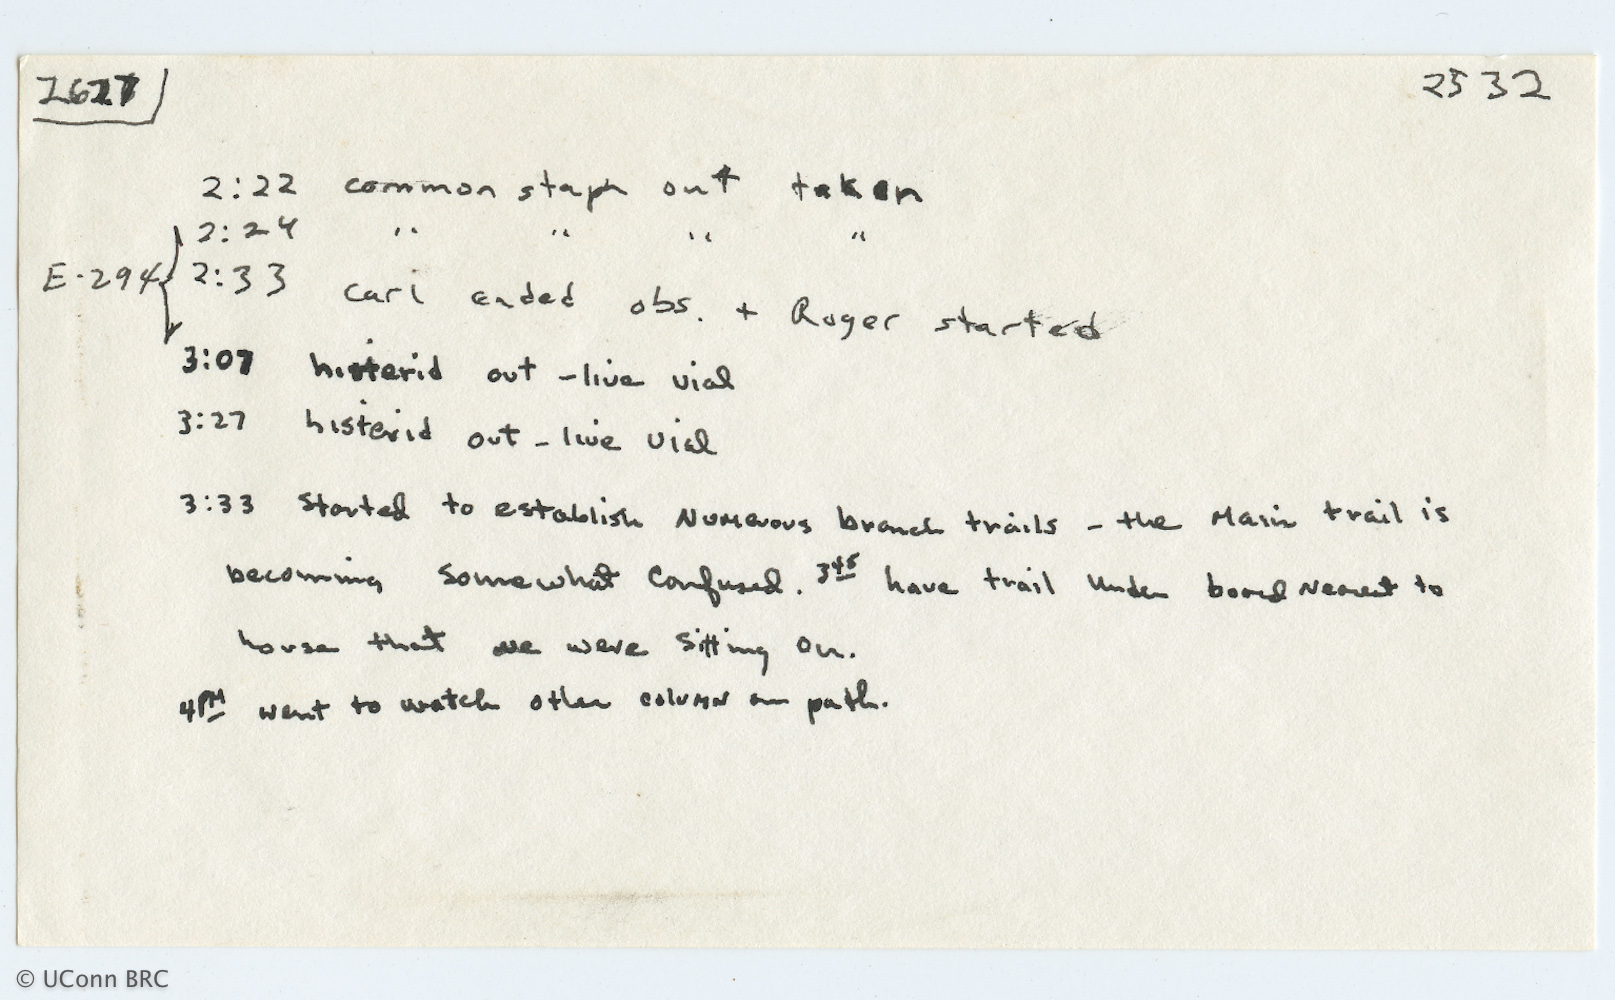 2532
2:22 common staph out taken
2:24 " " " "
E-294 2:33 Carl ended obs. + Roger started
3:07 histerid out - live vial
3:27 histerid out - live vial
3:33 Started to establish numerous branch trails - the main trail is
becoming somewhat confused. 3 45 have trail under board nearest to
house that we were sitting on.
4 PM went to watch other column on path.
© UConn BRC